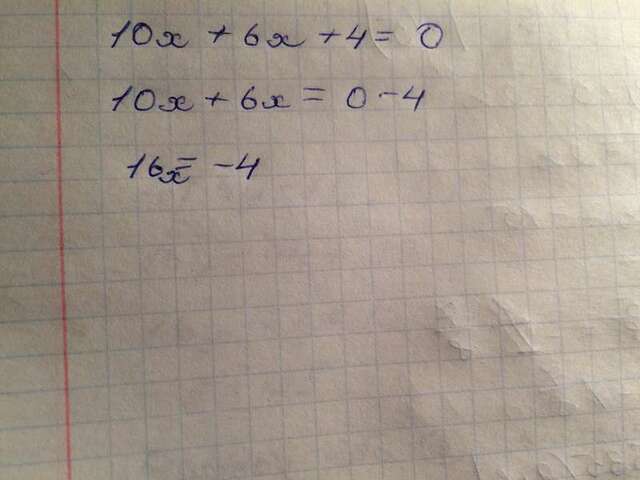 10x + 6x + 4 = 0
10x + 6x = 0 - 4
16x = -4